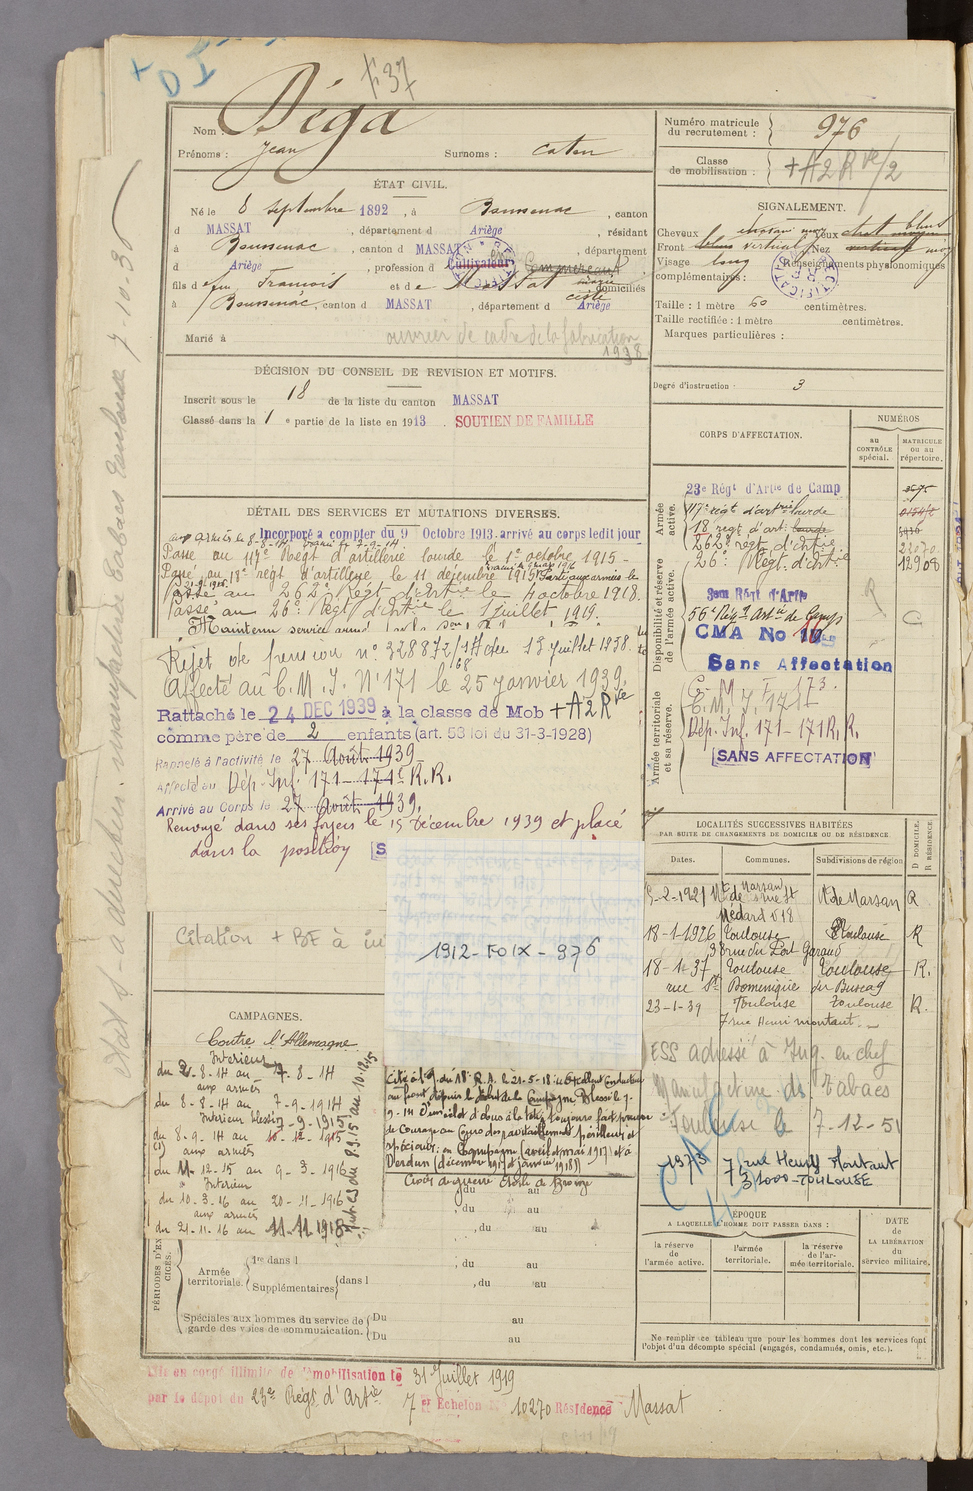 + D I
F 37
Nom : Déga
Prénoms : Jean Surnoms : Caton
ÉTAT CIVIL.
Né le 8 septembre 1892, à Boussenac, canton
d MASSAT, département d Ariège, résidant
à Boussenac, canton d MASSAT, département
d Ariège, profession d Cultivateur
fils de feu Francois et de domiciliés
à Boussenac canton d MASSAT, département d Ariège
Marié à
ouvrier de cadre de la fabrication
1938
DÉCISION DU CONSEIL DE REVISION ET MOTIFS.
Inscrit sous le n° 18 de la liste du canton MASSAT
Classé dans la 1e partie de la liste en 1913. SOUTIEN DE FAMILLE
DÉTAIL DES SERVICES ET MUTATIONS DIVERSES.
Incorporé a compter du 9 Octobre 1913. arrivé au corps ledit jour
aux armées le 8-8-14
Passé au 117e Régt d'artillerie lourde le 1er octobre 1915
Passé au 18e régt d'artillerie le 11 décembre 1915 Parti aux armées le
Passé au 262e Régt d'Artie le 4 octobre 1918.
Passé au 26e Régt d'Artie le 1 juillet 1919.
Maintenu service armé
Rejet de pension n° 328872/ du 13 juillet 1938.
Affecté au C.M.I. N°171 le 25 janvier 1939.
Rattaché le 24 DEC 1939 à la classe de Mob + A2Rve
comme père de 2 enfants (art. 58 loi du 31-3-1928)
Rappelé à l'activité le 27 Août 1939
Affecté au Dép-Inf. 171 - 171e R.R.
Arrivé au Corps le 27 Août 1939.
Renvoyé dans ses foyers le 15 décembre 1939 et placé
dans la position S
Citation + BE à
1912-FOIX-976
CAMPAGNES.
Contre l'Allemagne
Interieur
du 2-8-14 au 7-8-14
aux armés
du 8-8-14 au 7-9-1914
Interieur blessé
du 8-9-14 au 9-9-1915
aux armés
du 11-12-15 au 9-3-1916
Interieur
du 10-3-16 au 20-11-1916
aux armés
du 21-11-16 au 11-11-1918
Cité à l'O. du 18e R.A. le 21-5-18 : Excellent conducteur
au front depuis le début de la Campagne. Blessé le 7-
9-14 d'un éclat d'obus à la tête, toujours fait preuve
de courage au cours des ravitaillements périlleux et
spéciaux : en Champagne (avril et mai 1917) et à
Verdun (décembre 1917 et janvier 1918)
Croix de guerre Etoile de Bronze
, du au
, du au
, du au
PÉRIODES D'EXERCICES.
Armée territoriale. 1re dans l , du au
Supplémentaires dans l , du au
Spéciales aux hommes du service de garde des voies de communication. Du au
Du au
Mis en congé illimité de démobilisation le 31 Juillet 1919
par le dépôt du 23e Régt d'Artie 7er Echelon N° 10270 Résidence Massat
Numéro matricule du recrutement : 976
Classe de mobilisation : + A2Rve/2
SIGNALEMENT.
Cheveux chatain Yeux
Front vertical Nez moy
Visage long Renseignements physionomiques
complémentaires :
Taille : 1 mètre 60 centimètres.
Taille rectifiée : 1 mètre centimètres.
Marques particulières :
Degré d'instruction : 3
CORPS D'AFFECTATION.
NUMÉROS
au CONTRÔLE spécial.
MATRICULE ou au répertoire.
Armée active.
23e Régt d'Artie de Camp
117e régt d'artrie lourde
18 regt d'art. lourde
262e régt d'artie
26e Régt d'Artie 12908
Disponibilité et réserve de l'armée active.
56e Régt Artie de Camp
CMA No
Sans Affectation
Armée territoriale et sa réserve.
C.M.I. 173.
C.M.I. 171
Dép. Inf. 171 - 171 R.R.
SANS AFFECTATION
LOCALITÉS SUCCESSIVES HABITÉES
PAR SUITE DE CHANGEMENTS DE DOMICILE OU DE RÉSIDENCE
D DOMICILE. R RÉSIDENCE.
Dates. Communes. Subdivisions de région
5-2-1921 Mt de Marsan Mt de Marsan R
rue St Médard n°18
18-1-1926 Toulouse Toulouse R
38 rue du Port Garaud
18-1-37 Toulouse Toulouse R.
rue St Dominique du Buscag
23-1-39 Toulouse Toulouse R.
7 rue Henri montaut
ESS adressé à Ing. en chef
Manufacture des Tabacs
Toulouse le 7-12-51
1973 7, rue Henry Montaut
31000-TOULOUSE
ÉPOQUE
A LAQUELLE L'HOMME DOIT PASSER DANS :
la réserve de l'armée active.
l'armée territoriale.
la réserve de l'armée territoriale.
DATE de LA LIBÉRATION du service militaire.
Ne remplir ce tableau que pour les hommes dont les services font
l'objet d'un décompte spécial (engagés, condamnés, omis, etc.).